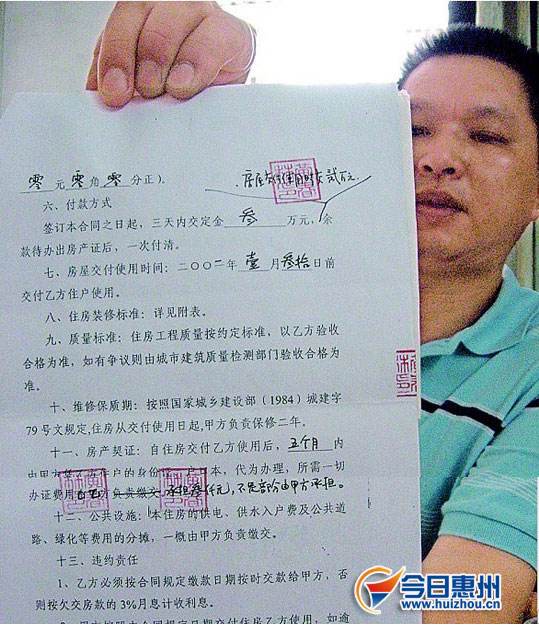 零 元 零 角 零 分正）。
六、付款方式
签订本合同之日起，三天内交定金 叁 万元，余
款待办出房产证后，一次付清。
七、房屋交付使用时间：二〇〇二年 壹 月 叁拾 日前
交付乙方住户使用。
八、住房装修标准：详见附表。
九、质量标准：住房工程质量按约定标准，以乙方验收
合格为准，如有争议则由城市建筑质量检测部门验收合格为
准。
十、维修保质期：按照国家城乡建设部（1984）城建字
79 号文规定,住房从交付使用日起,甲方负责保修二年。
十一、房产契证：自住房交付乙方使用后，五个月 内
由甲方 住户的身份证 本，代为办理，所需一切
办证费用 方负责缴交,承担叁仟元，不足部分由甲方承担。
十二、公共设施：本住房的供电、供水入户费及公共道
路、绿化等费用的分摊，一概由甲方负责缴交。
十三、违约责任
1、乙方必须按合同规定缴款日期按时交款给甲方，否
则按欠交房款的 3%月息计收利息。
今日惠州
www.huizhou.cn